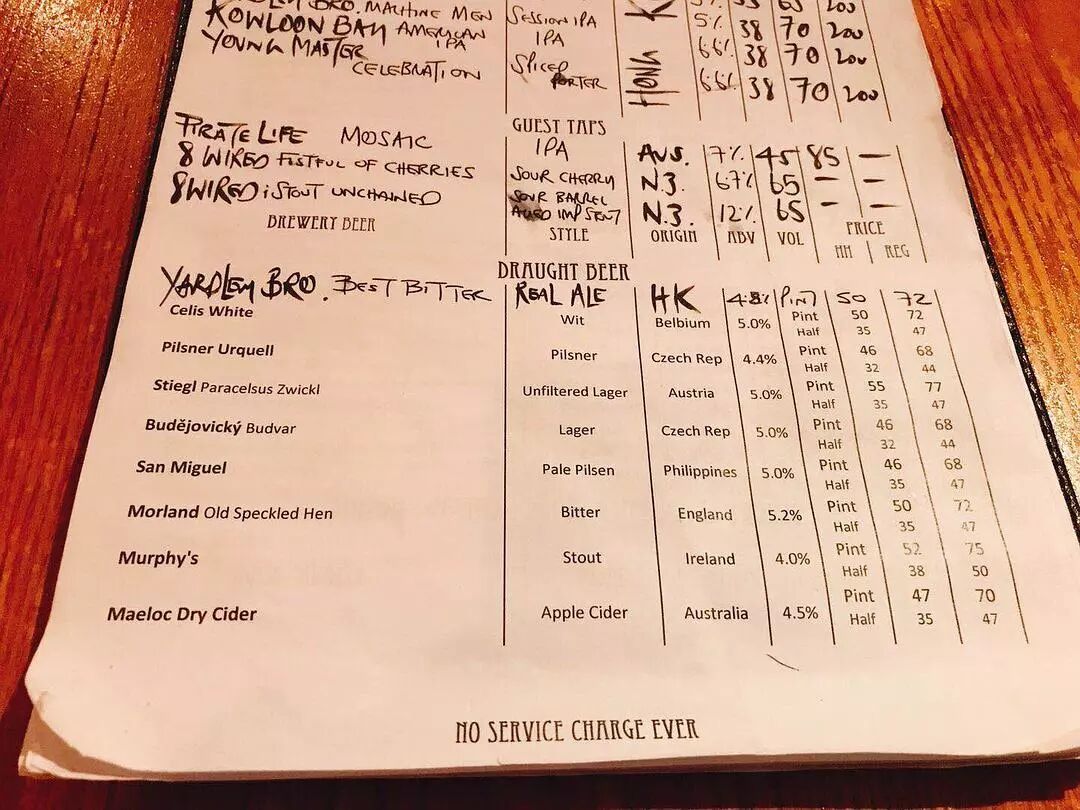 BRO. MACHINE MEN SESSION IPA 5% 35 65 200
KOWLOON BAY AMERICAN IPA IPA 5% 38 70 200
YOUNG MASTER 6.6% 38 70 200
CELEBRATION SPICED PORTER HONG 6.6% 38 70 200
GUEST TAPS
PIRATE LIFE MOSAIC IPA AUS. 7% 45 85 —
8 WIRED FISTFUL OF CHERRIES SOUR CHERRY N.Z. 6.7% 65 — —
8 WIRED iSTOUT UNCHAINED SOUR BARREL AGED IMP STOUT N.Z. 12% 65 — —
BREWERY BEER STYLE ORIGIN ABV VOL PRICE
HH REG
DRAUGHT BEER
YARDLEY BRO. BEST BITTER REAL ALE HK 4.8% PINT 50 72
Celis White Wit Belbium 5.0% Pint 50 72
Half 35 47
Pilsner Urquell Pilsner Czech Rep 4.4% Pint 46 68
Half 32 44
Stiegl Paracelsus Zwickl Unfiltered Lager Austria 5.0% Pint 55 77
Half 35 47
Budějovický Budvar Lager Czech Rep 5.0% Pint 46 68
Half 32 44
San Miguel Pale Pilsen Philippines 5.0% Pint 46 68
Half 35 47
Morland Old Speckled Hen Bitter England 5.2% Pint 50 72
Half 35 47
Murphy's Stout Ireland 4.0% Pint 52 75
Half 38 50
Maeloc Dry Cider Apple Cider Australia 4.5% Pint 47 70
Half 35 47
NO SERVICE CHARGE EVER